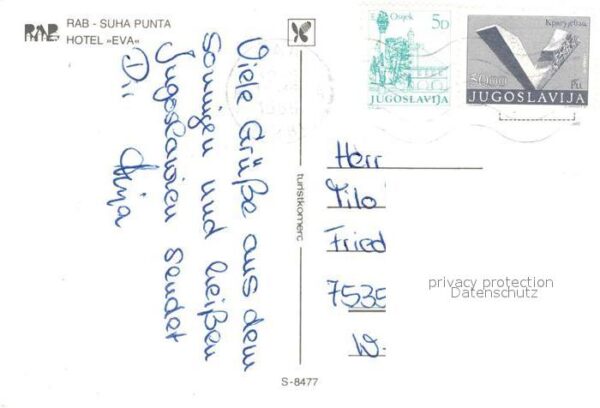 RAB - SUHA PUNTA
RAB HOTEL »EVA«
Viele Grüße aus dem
sonnigen und heißen
Jugoslawien sendet
Dir
Osijek 5D
JUGOSLAVIJA
Крагујевац
50.00
JUGOSLAVIJA
turistkomerc
Herr
Tilo
Fried
7535
W.
privacy protection
Datenschutz
S-8477